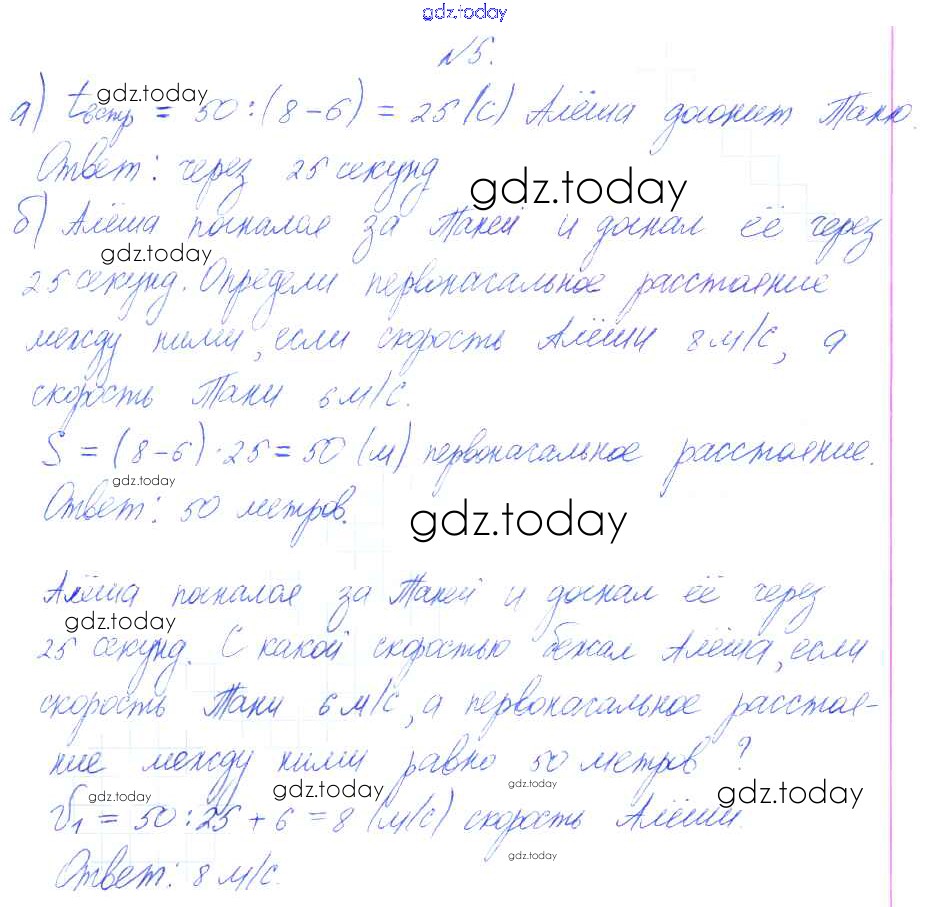 gdz.today
№5.
gdz.today
а) tвстр = 50 : (8 - 6) = 25 (с) Алёша догонит Таню.
Ответ: через 25 секунд
gdz.today
б) Алёша погнался за Таней и догнал её через
gdz.today
25 секунд. Определи первоначальное расстояние
между ними, если скорость Алёши 8 м/с, а
скорость Тани 6 м/с.
S = (8 - 6) · 25 = 50 (м) первоначальное расстояние.
gdz.today
Ответ: 50 метров.
gdz.today
Алёша погнался за Таней и догнал её через
gdz.today
25 секунд. С какой скоростью бежал Алёша, если
скорость Тани 6 м/с, а первоначальное расстоя-
ние между ними равно 50 метров?
gdz.today gdz.today gdz.today gdz.today
V1 = 50 : 25 + 6 = 8 (м/с) скорость Алёши.
gdz.today
Ответ: 8 м/с.